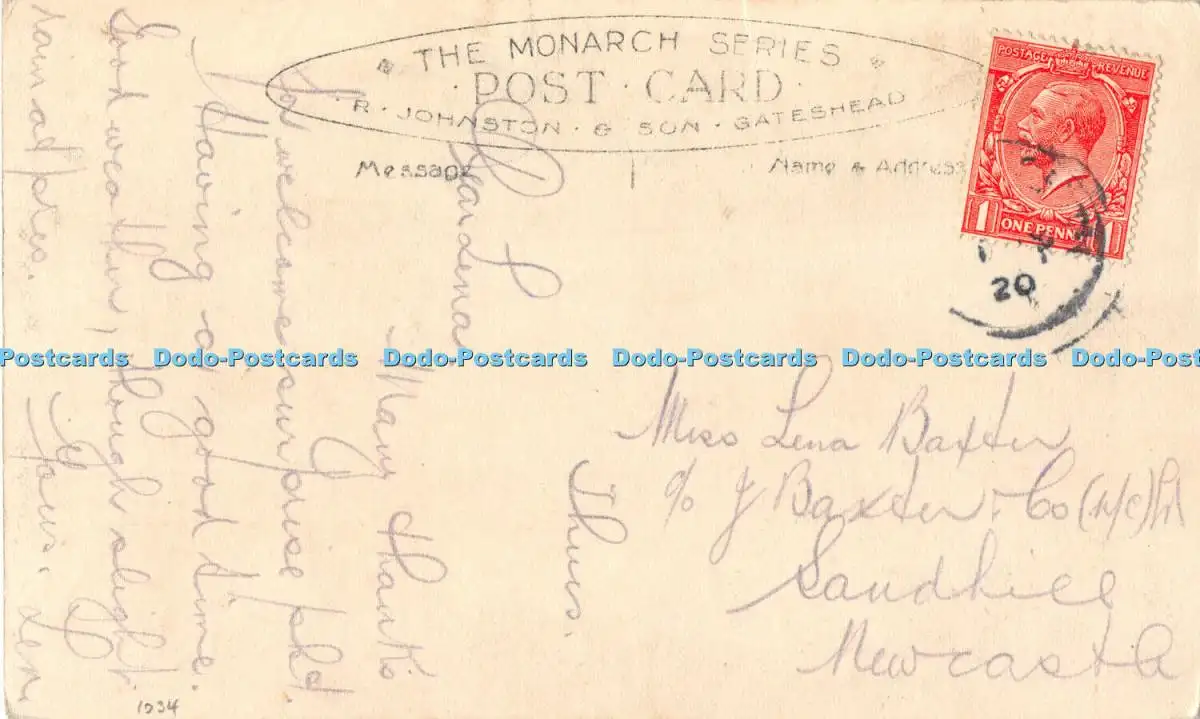 THE MONARCH SERIES
POST CARD
R. JOHNSTON & SON. GATESHEAD
Message
Name & Address
POSTAGE REVENUE
1 ONE PENNY 1
20
Thurs.
Dear Lena
Many thanks
for welcome surprise pkt
Having a good time.
Good weather, though slight
rain at ptes.
Yours. Len
Miss Lena Baxter
c/o J Baxter & Co (N/C) Ld
Sandhill
Newcastle
1034
Postcards Dodo-Postcards Dodo-Postcards Dodo-Postcards Dodo-Postcards Dodo-Post